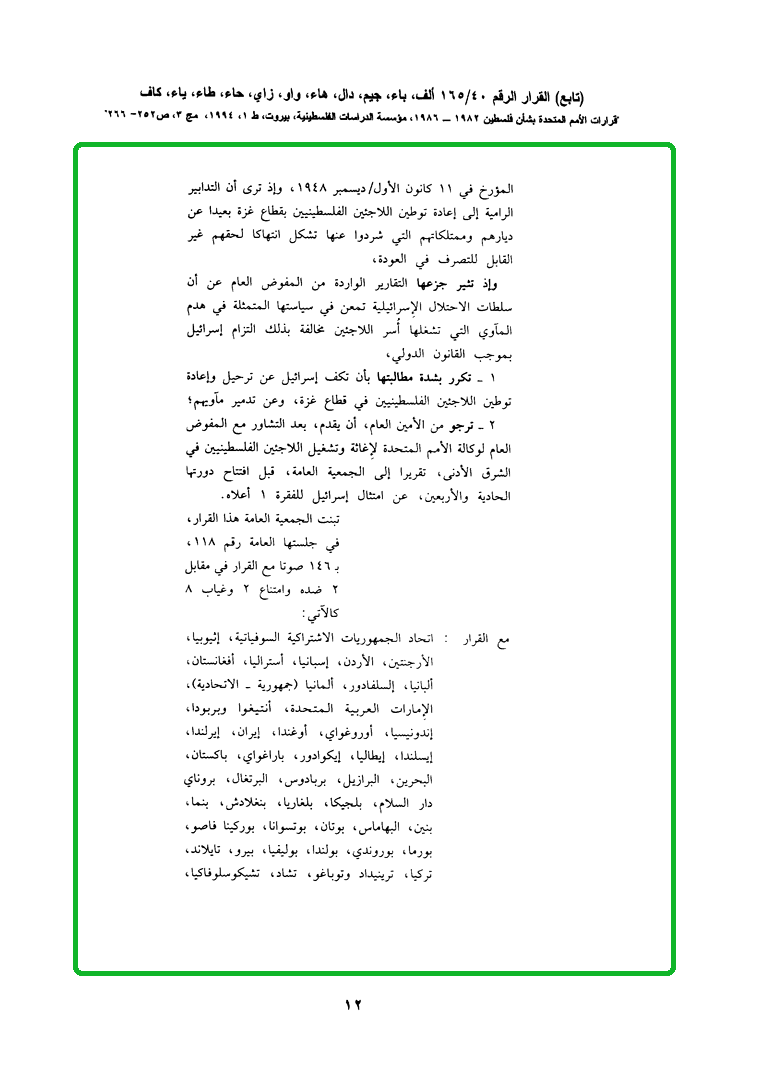 (تابع) القرار الرقم ١٦٥/٤٠ ألف، باء، جيم، دال، هاء، واو، زاي، حاء، طاء، ياء، كاف
"قرارات الأمم المتحدة بشأن فلسطين ١٩٨٢ ــ ١٩٨٦، مؤسسة الدراسات الفلسطينية، بيروت، ط ١، ١٩٩٤، مج ٣، ص٢٥٢- ٢٦٦"
المؤرخ في ١١ كانون الأول/ديسمبر ١٩٤٨، وإذ ترى أن التدابير
الرامية إلى إعادة توطين اللاجئين الفلسطينيين بقطاع غزة بعيدا عن
ديارهم وممتلكاتهم التي شردوا عنها تشكل انتهاكا لحقهم غير
القابل للتصرف في العودة،
وإذ تثير جزعها التقارير الواردة من المفوض العام عن أن
سلطات الاحتلال الإسرائيلية تمعن في سياستها المتمثلة في هدم
المآوي التي تشغلها أُسر اللاجئين مخالفة بذلك التزام إسرائيل
بموجب القانون الدولي،
١ ـ تكرر بشدة مطالبتها بأن تكف إسرائيل عن ترحيل وإعادة
توطين اللاجئين الفلسطينيين في قطاع غزة، وعن تدمير مآويهم؛
٢ ـ ترجو من الأمين العام، أن يقدم، بعد التشاور مع المفوض
العام لوكالة الأمم المتحدة لإغاثة وتشغيل اللاجئين الفلسطينيين في
الشرق الأدنى، تقريرا إلى الجمعية العامة، قبل افتتاح دورتها
الحادية والأربعين، عن امتثال إسرائيل للفقرة ١ أعلاه.
تبنت الجمعية العامة هذا القرار،
في جلستها العامة رقم ١١٨،
بـ ١٤٦ صوتا مع القرار في مقابل
٢ ضده وامتناع ٢ وغياب ٨
كالآتي:
مع القرار : اتحاد الجمهوريات الاشتراكية السوفياتية، إثيوبيا،
الأرجنتين، الأردن، إسبانيا، أستراليا، أفغانستان،
ألبانيا، إلسلفادور، ألمانيا (جمهورية ـ الاتحادية)،
الإمارات العربية المتحدة، أنتيغوا وبربودا،
إندونيسيا، أوروغواي، أوغندا، إيران، إيرلندا،
إيسلندا، إيطاليا، إيكوادور، باراغواي، باكستان،
البحرين، البرازيل، بربادوس، البرتغال، بروناي
دار السلام، بلجيكا، بلغاريا، بنغلادش، بنما،
بنين، البهاماس، بوتان، بوتسوانا، بوركينا فاصو،
بورما، بوروندي، بولندا، بوليفيا، بيرو، تايلاند،
تركيا، ترينيداد وتوباغو، تشاد، تشيكوسلوفاكيا،
١٢